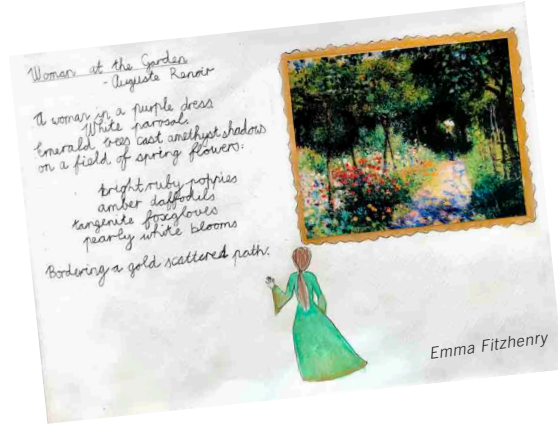 Woman at the Garden
- Auguste Renoir
A woman in a purple dress
White parasol.
Emerald trees cast amethyst shadows
on a field of spring flowers:
bright ruby poppies
amber daffodils
tangenite foxgloves
pearly white blooms
Bordering a gold scattered path.
Emma Fitzhenry